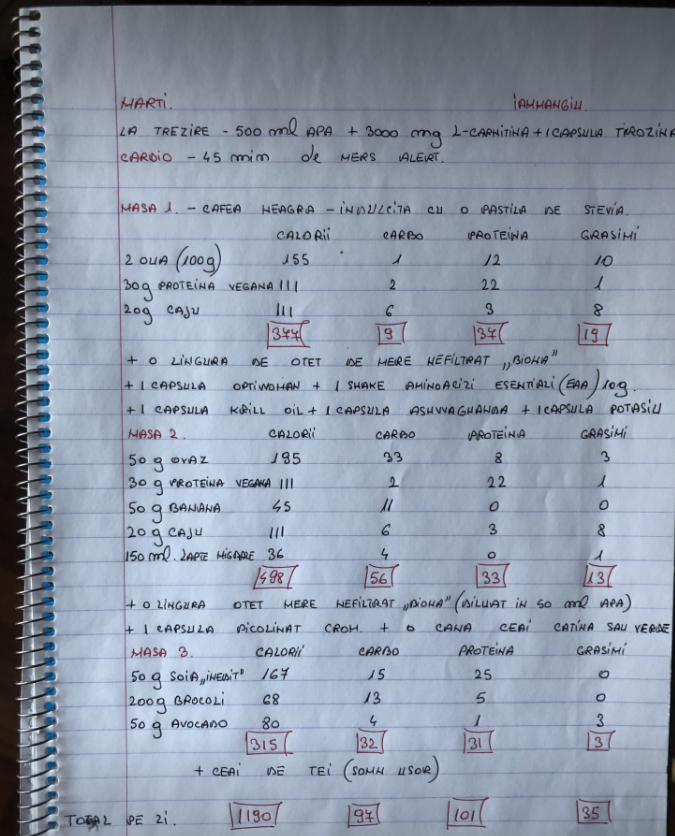 MARTI. IAMMANGIU.
LA TREZIRE - 500 ml APA + 3000 mg L-CARNITINA + 1 CAPSULA TIROZINA
CARDIO - 45 min de MERS ALERT.
MASA 1. - CAFEA NEAGRA - INDULCITA CU O PASTILA DE STEVIA.
CALORII CARBO PROTEINA GRASIMI
2 OUA (100g) 155 1 12 10
30g PROTEINA VEGANA 111 2 22 1
20g CAJU 111 6 3 8
377 9 37 19
+ O LINGURA DE OTET DE MERE NEFILTRAT „BIONA"
+ 1 CAPSULA OPTIWOMAN + 1 SHAKE AMINOACIZI ESENTIALI (EAA) 10g.
+ 1 CAPSULA KRILL OIL + 1 CAPSULA ASHWAGHANDA + 1 CAPSULA POTASIU
MASA 2. CALORII CARBO PROTEINA GRASIMI
50 g OVAZ 195 33 8 3
30 g PROTEINA VEGANA 111 2 22 1
50 g BANANA 45 11 0 0
20 g CAJU 111 6 3 8
150 ml. LAPTE MIGDALE 36 4 0 1
498 56 33 13
+ O LINGURA OTET MERE NEFILTRAT „BIONA" (DILUAT IN 50 ml APA)
+ 1 CAPSULA PICOLINAT CROM. + O CANA CEAI CATINA SAU VERDE
MASA 3. CALORII CARBO PROTEINA GRASIMI
50 g SOIA „INEDIT" 167 15 25 0
200g BROCOLI 68 13 5 0
50 g AVOCADO 80 4 1 3
315 32 31 3
+ CEAI DE TEI (SOMN USOR)
TOTAL PE ZI. 1190 97 101 35